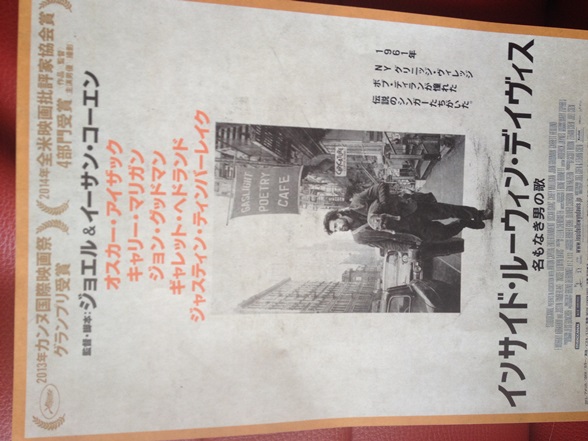 2013年カンヌ国際映画祭
グランプリ受賞
2014年全米映画批評家協会賞
4部門受賞
作品 監督
主演男優 撮影
監督・脚本:ジョエル&イーサン・コーエン
オスカー・アイザック
キャリー・マリガン
ジョン・グッドマン
ギャレット・ヘドランド
ジャスティン・ティンバーレイク
GASLIGHT
POETRY
CAFE
1961年
NYグリニッジ・ヴィレッジ
ボブ・ディランが憧れた
伝説のシンガーたちがいた。
インサイド・ルーウィン・デイヴィス
名もなき男の歌